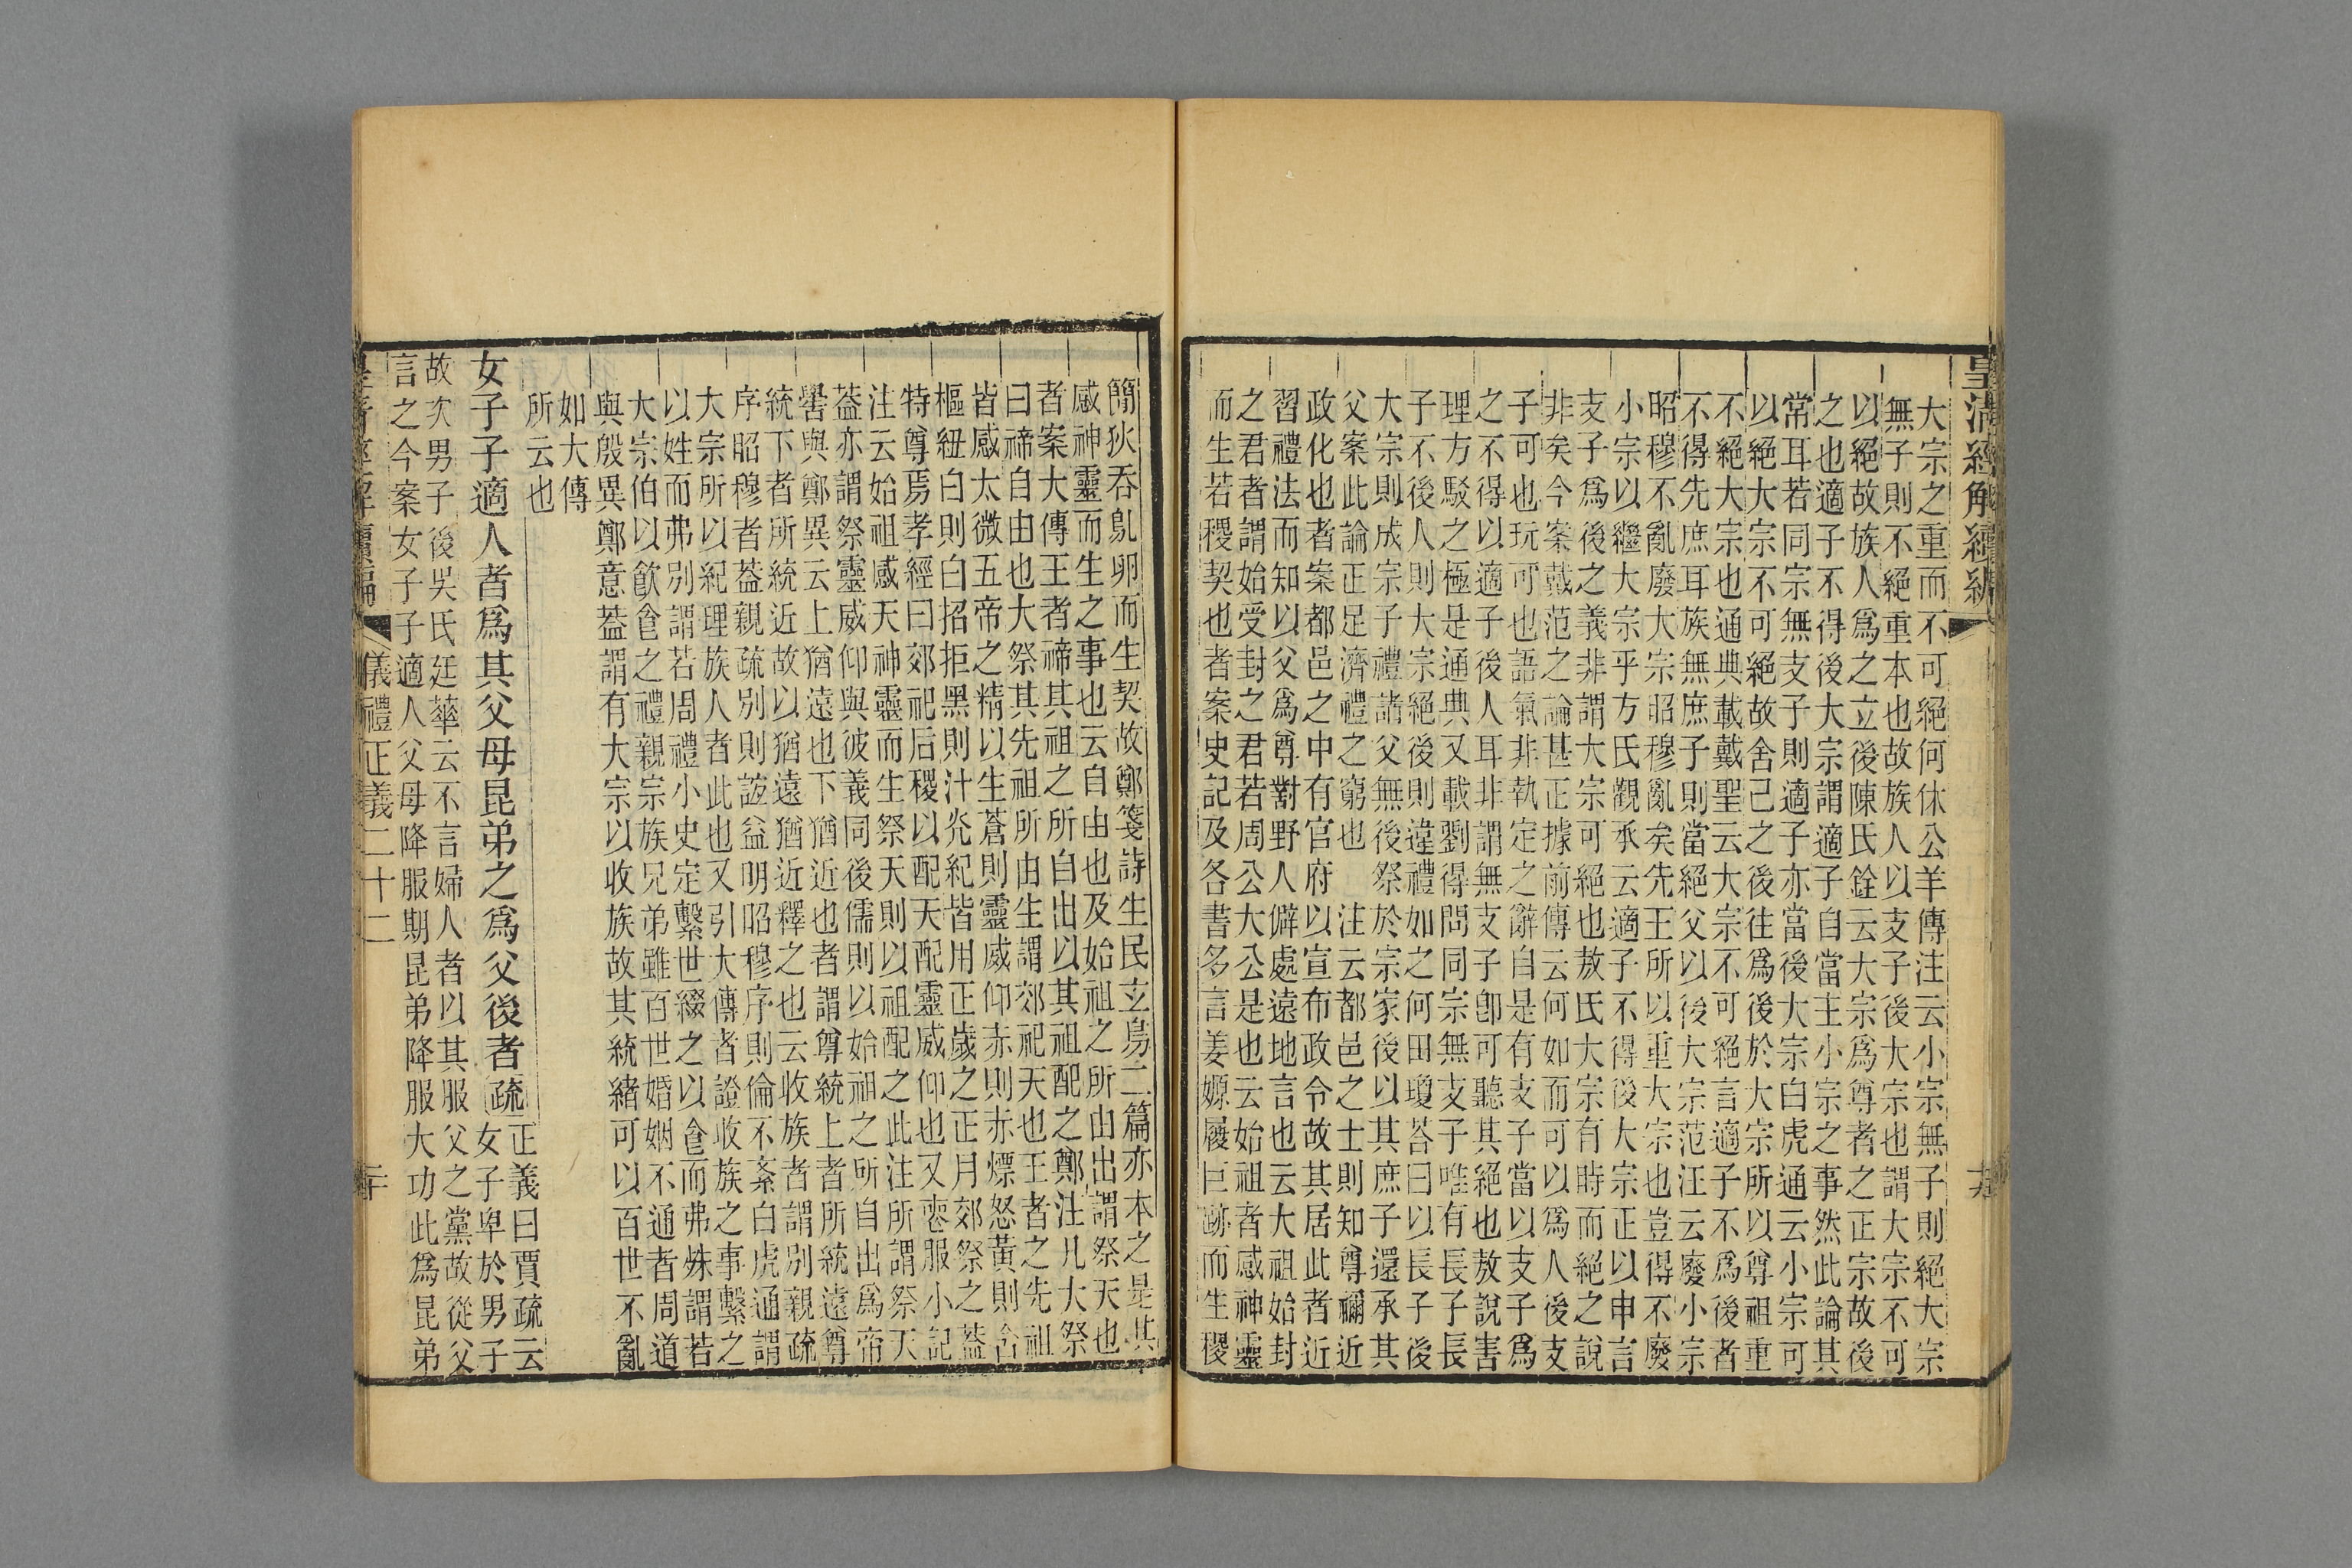 皇清經解續編
大宗之重而不可絕何休公羊傳注云小宗無子則絕大宗
無子則不絕重本也故族人以支子後大宗也謂大宗不可
以絕故族人爲之立後陳氏銓云大宗爲尊者之正宗故後
之也適子不得後大宗謂適子自當主小宗之事然此論其
常耳若同宗無支子則適子亦當後大宗白虎通云小宗可
以絕大宗不可絕故舍己之後往爲後於大宗所以尊祖重
不絕大宗也通典載戴聖云大宗不可絕言適子不爲後者
不得先庶耳族無庶子則當絕父以後大宗范汪云廢小宗
昭穆不亂廢大宗昭穆亂矣先王所以重大宗也豈得不廢
小宗以繼大宗乎方氏觀承云適子不得後大宗正以申言
支子爲後之義非謂大宗可絕也敖氏大宗有時而絕之說
非矣今案戴范之論甚正據前傳云何如而可以爲人後支
子可也玩可也語氣非執定之辭自是有支子當以支子爲
之不得以適子後人耳非謂無支子卽可聽其絕也敖說害
理方駁之極是通典又載劉得問同宗無支子唯有長子長
子不後人則大宗絕後則違禮如之何田瓊荅曰以長子後
大宗則成宗子禮諸父無後祭於宗家後以其庶子還承其
父案此論正足濟禮之窮也　注云都邑之士則知尊禰近
政化也者案都邑之中有官府以宣布政令故其居此者近
習禮法而知以父爲尊對野人僻處遠地言也云大祖始封
之君者謂始受封之君若周公大公是也云始祖者感神靈
而生若稷契也者案史記及各書多言姜嫄履巨跡而生稷
十九
簡狄吞鳦卵而生契故鄭箋詩生民玄鳥二篇亦本之是其
感神靈而生之事也云自由也及始祖之所由出謂祭天也
者案大傳王者禘其祖之所自出以其祖配之鄭注凡大祭
曰禘自由也大祭其先祖所由生謂郊祀天也王者之先祖
皆感太微五帝之精以生蒼則靈威仰赤則赤熛怒黃則含
樞紐白則白招拒黑則汁光紀皆用正歲之正月郊祭之蓋
特尊焉孝經曰郊祀后稷以配天配靈威仰也又喪服小記
注云始祖感天神靈而生祭天則以祖配之此注所謂祭天
葢亦謂祭靈威仰與彼義同後儒則以始祖之所自出爲帝
嚳與鄭異云上猶遠也下猶近也者謂尊統上者所統遠尊
統下者所統近故以猶遠猶近釋之也云收族者謂別親疏
序昭穆者葢親疏別則誼益明昭穆序則倫不紊白虎通謂
大宗所以紀理族人者此也又引大傳者證收族之事繫之
以姓而弗別謂若周禮小史定繫世綴之以食而弗殊謂若
大宗伯以飮食之禮親宗族兄弟雖百世婚姻不通者周道
與殷異鄭意葢謂有大宗以收族故其統緒可以百世不亂
如大傳
所云也
女子子適人者爲其父母昆弟之爲父後者疏正義曰賈疏云
女子卑於男子
故次男子後吳氏廷華云不言婦人者以其服父之黨故從父
言之今案女子子適人父母降服期昆弟降服大功此爲昆弟
皇清經解續編
儀禮正義二十二
二十